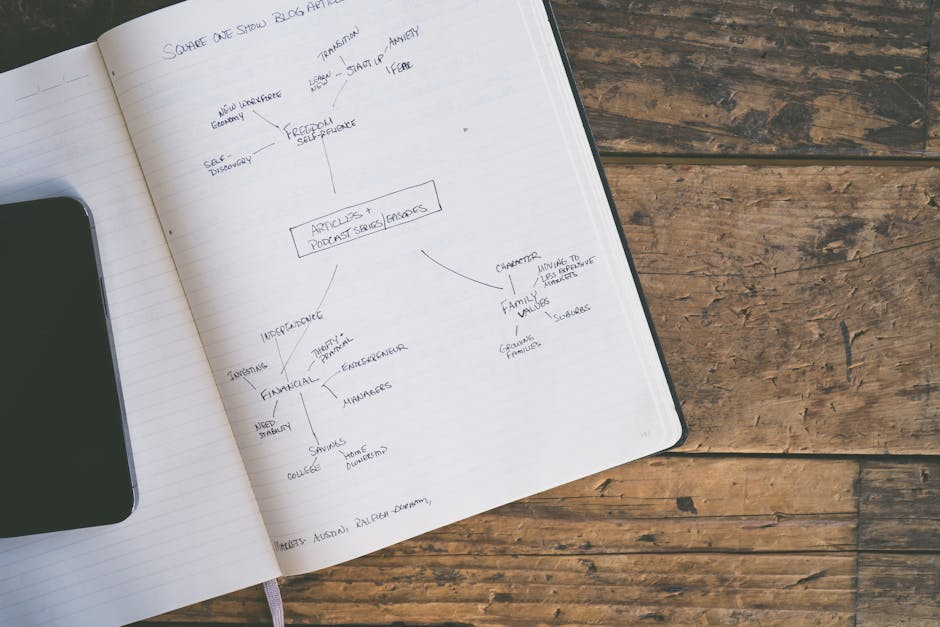 SQUARE ONE SHOW BLOG ARTICLE
TRANSITION
ANXIETY
LEARN
NEW
START UP
FEAR
NEW WORKFORCE
ECONOMY
FREEDOM
SELF-RELIENCE
SELF-
DISCOVERY
ARTICLES +
PODCAST SERIES/EPISODES
CHARACTER
MOVING TO
LESS EXPENSIVE
MARKETS
FAMILY
VALUES
SUBURBS
GROWING
FAMILIES
INDEPENDENCE
THRIFTY +
PRATICAL
INVESTING
ENTERPRENEUR
FINANCIAL
MANAGERS
NEED
STABILITY
SAVINGS
COLLEGE
HOME
OWNERSHIP
MARKETS- AUSTIN, RALEIGH-DURHAM,